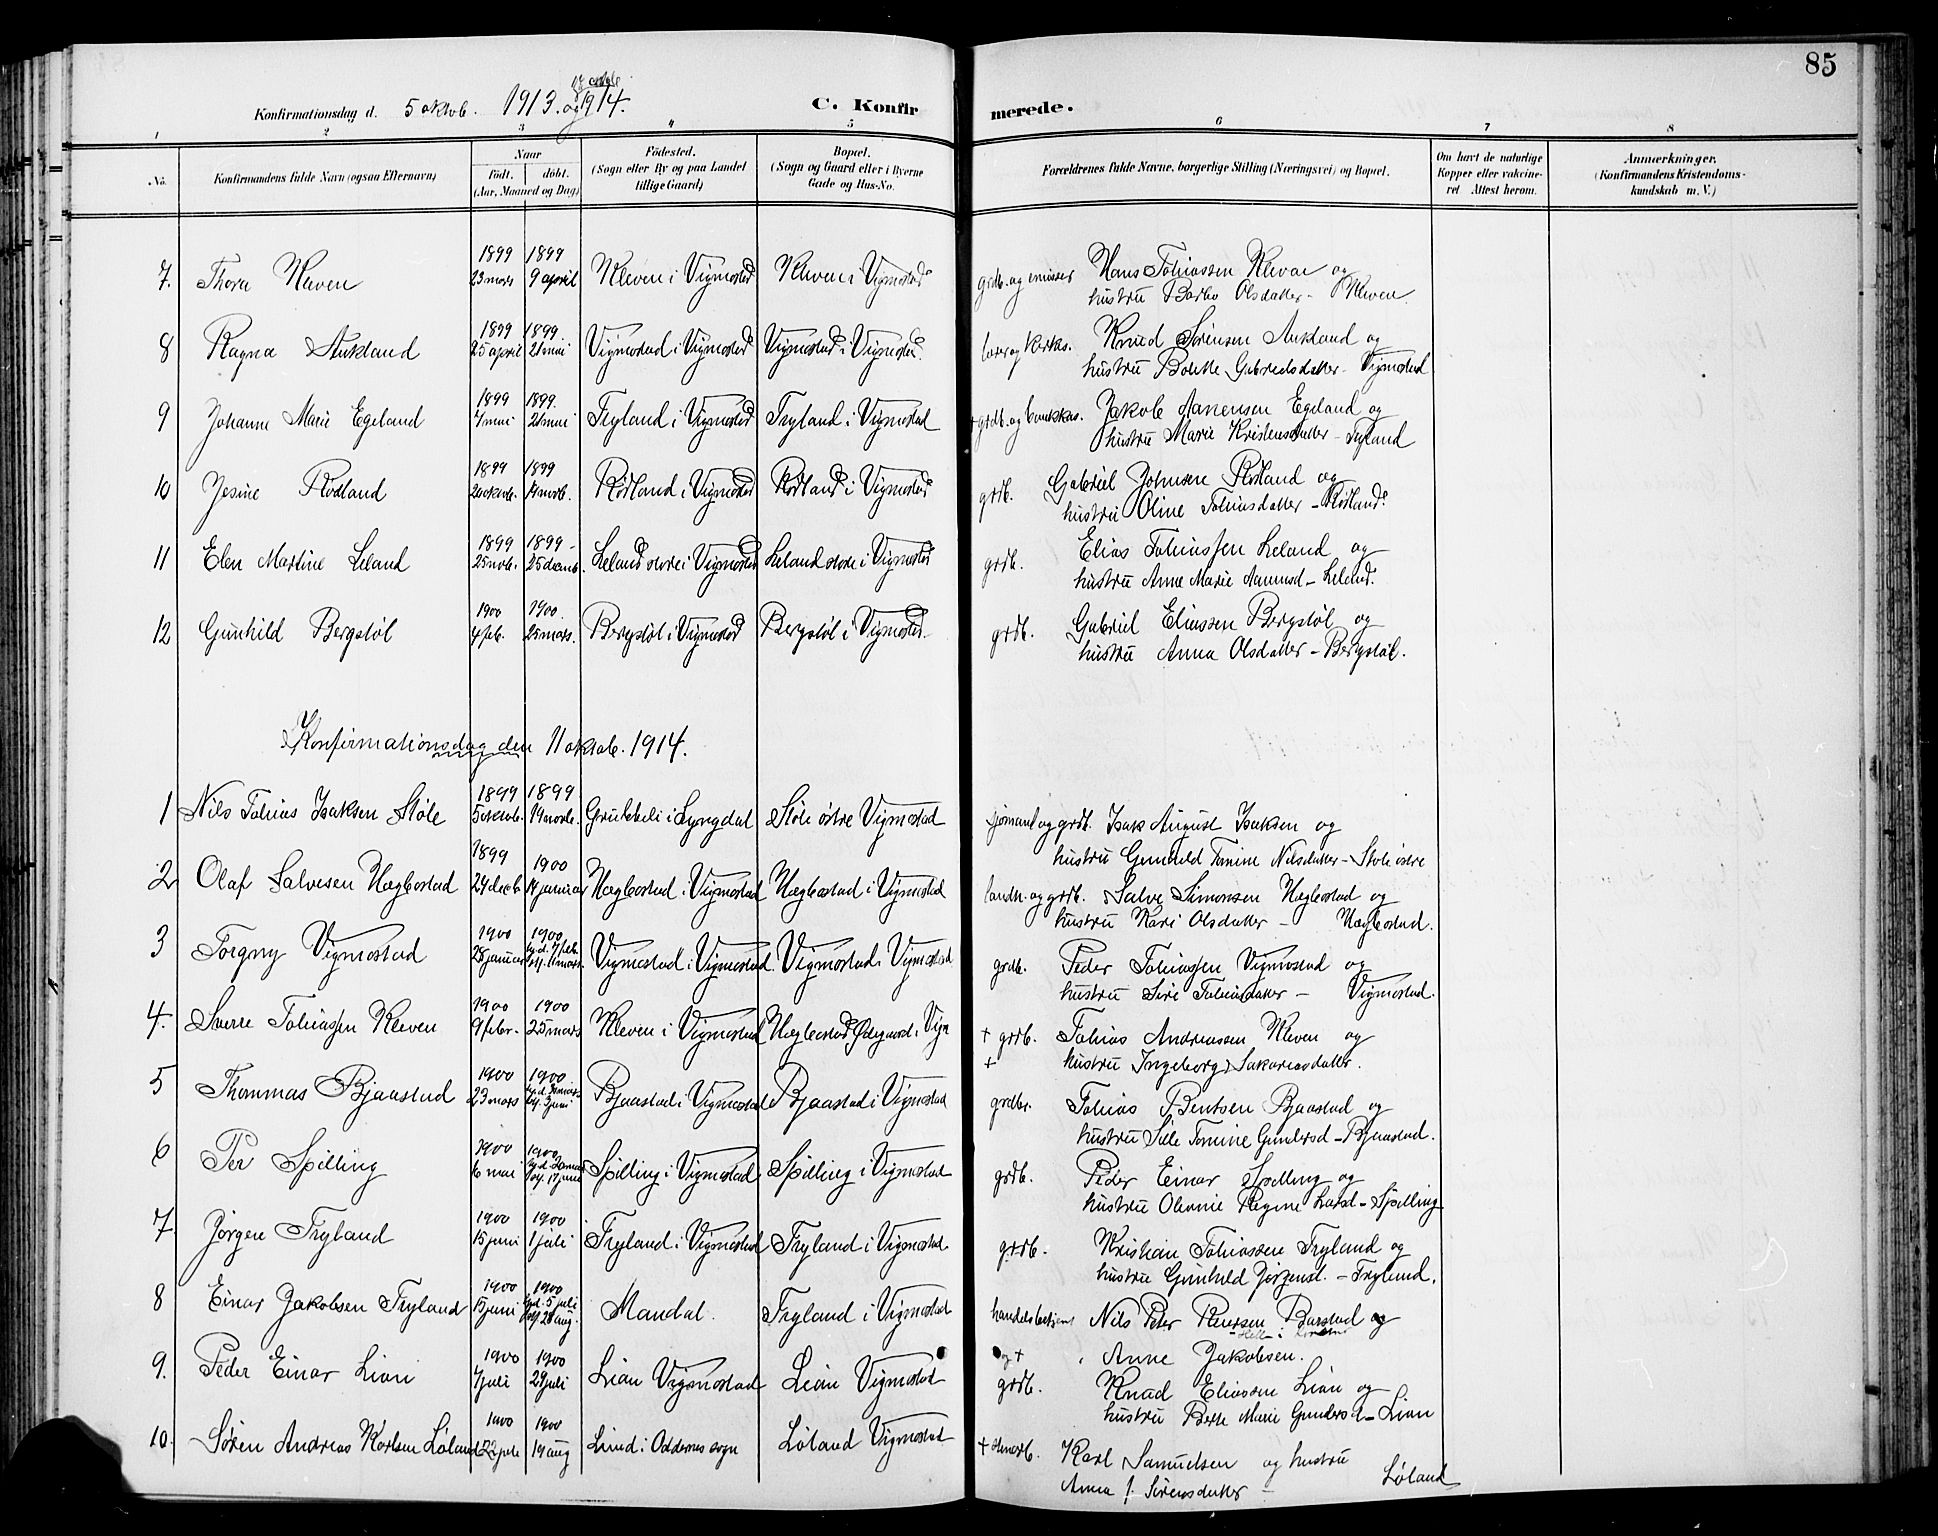 85
Konfirmationsdag d. 5 oktob. 1913. og 1914.
C. Konfirmerede.
1 2 3 4 5 6 7 8
No.
Konfirmandens fulde Navn (ogsaa Efternavn)
Naar
født. døbt.
(Aar, Maaned og Dag)
Fødested.
(Sogn eller By og paa Landet
tillige Gaard)
Bopæl.
(Sogn og Gaard eller i Byerne
Gade og Hus-No.
Forældrenes fulde Navne, borgerlige Stilling (Næringsvei) og Bopæl.
Om havt de naturlige
Kopper eller vakcine-
ret Attest herom.
Anmerkninger.
(Konfirmandens Kristendoms-
kundskab m. V.)
7. Thora Kleven 1899 23 mars 1899 9 april Kleven i Vigmostad Kleven i Vigmostad grdb. og Hans Tobiassen Kleven og
hustru Barbo Olsdatter - Kleven.
8 Ragna Aukland 1899 25 april 1899. 21 mai Vigmostad i Vigmostad Vigmostad i Vigmostad. lærer og kirkes. Knud Sørensen Aukland og
hustru Bolette Gabrielsdatter - Vigmostad
9 Johanne Marie Egeland 1899 7 mai 1899. 21 mai Tryland i Vigmostad Tryland i Vigmostad grdb. og bankkas. Jakob Aanensen Egeland og
hustru Marie Kristensdatter - Tryland
10 Jesine Rødland 1899 26 oktob. 1899 19 novb. Rødland i Vigmostad Rødland i Vigmostad grdb. Gabriel Johnsen Rødland og
hustru Oline Tobiasdatter - Rødland.
11 Elen Martine Leland 1899 25 nob. 1899 - 25 decemb. Leland store i Vigmostad Leland store i Vigmostad grdb. Elias Tobiassen Leland og
hustru Anne Marie Aanensd - Leland.
12 Gunhild Bergstøl 1900 4 feb. 1900. 25 mars. Bergstøl i Vigmostad Bergstøl i Vigmostad - grdb. Gabriel Eliassen Bergstøl og
hustru Anna Olsdatter - Bergstøl.
Konfirmationsdag den 11 oktob. 1914.
1 Nils Tobias Isaksen Støle 1899 5 oktob. 1899 19 novb. Grubbeli i Lyngdal Støle østre Vigmostad sjømand og grdb. Isak August Isaksen og
hustru Gunhild Tomine Nilsdatter - Støle østre
2 Olaf Salvesen Hægbostad 1899 24 decb 1900 14 januar Hægbostad i Vigmostad Hægbostad i Vigmostad landh. og grdb. Salve Simonsen Hægbostad og
hustru Kari Olsdatter - Hægbostad.
3 Torgny Vigmostad 1900 28 januar 1900 hj.d. 7 feb. 11 mars. Vigmostad i Vigmostad Vigmostad i Vigmostad grdb. Peder Tobiassen Vigmostad og
hustru Siri Tobiasdatter - Vigmostad.
4. Sverre Tobiassen Kleven 1900 9 febr. 1900 25 mars Kleven i Vigmostad Hægbostad Ødegaard i Vigm + grdb. Tobias Andreassen Kleven og
+ hustru Ingeborg Sakariasdatter.
5 Thommas Bjaastad 1900 23 mars 1900 3 juni Bjaastad i Vigmostad Bjaastad i Vigmostad grdbr. Tobias Bentsen Bjaastad og
hustru Sille Tomine Gundersd - Bjaastad.
6 Per Spilling 1900 6 mai 1900 17 juni Spilling i Vigmostad Spilling i Vigmostad grdb. Peder Einar Spilling og
hustru Regine Larsd - Spilling
7. Jørgen Tryland 1900 15 juni 1900 1 juli Tryland i Vigmostad Tryland i Vigmostad grdb. Kristian Tobiassen Tryland og
hustru Gunhild Jørgensd. - Tryland.
8 Einar Jakobsen Tryland 1900 15 juni 1900 hj.d. 5 juli 26 aug. Mandal. Tryland i Vigmostad handelsbetjent Nils Peter Petersen Barstad og
og + Anne Jakobsen.
9. Peder Einar Lian 1900 7 juli 1900 29 juli Lian Vigmostad Lian Vigmostad grdb. Knud Eliassen Lian og
hustru Berte Marie Gundersd - Lian
10. Søren Andreas Karlsen Løland 1900 22 juli 1900 19 aug Lund i Oddernes sogn Løland Vigmostad + Karl Samuelsen og hustru
Anna J. Sørensdatter - Løland